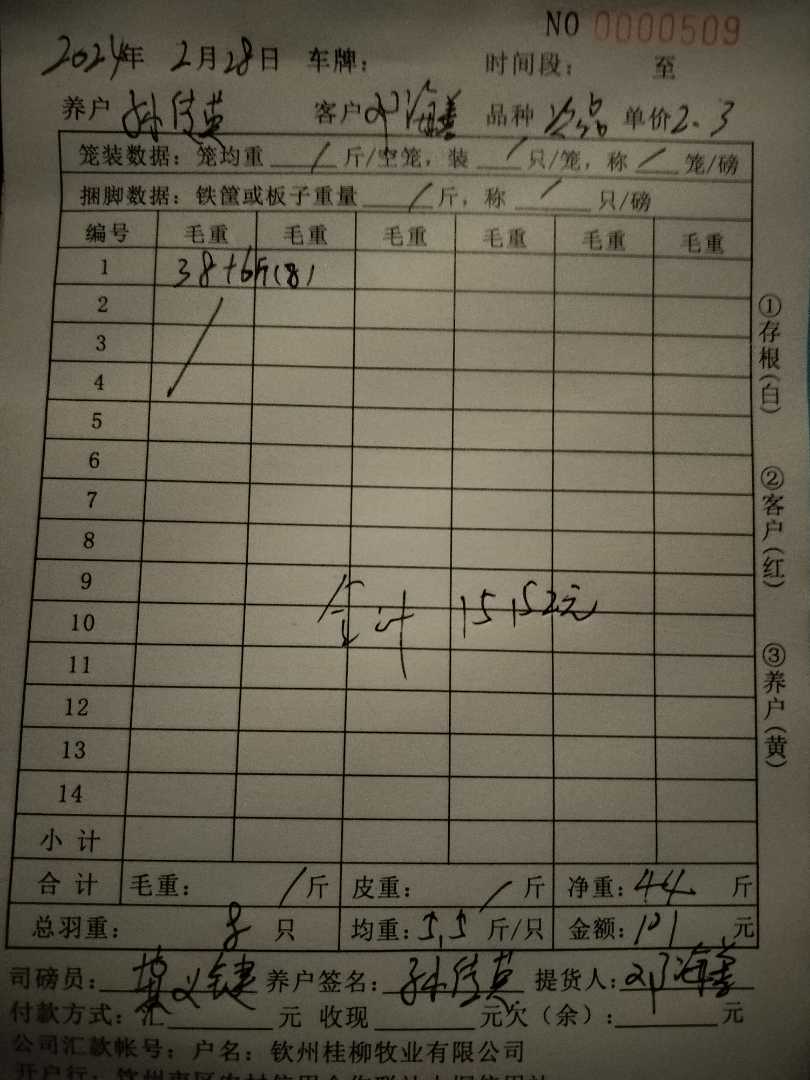 NO 0000509
2024年 2月28日 车牌: 时间段: 至
养户 孙佳英 客户 邓海善 品种 次品 单价 2.3
笼装数据: 笼均重 / 斤/空笼, 装 / 只/笼, 称 / 笼/磅
捆脚数据: 铁筐或板子重量 / 斤, 称 / 只/磅
编号 毛重 毛重 毛重 毛重 毛重 毛重
1 38+6斤(8)
2
3
4
5
6
7
8
9
10
合计 15152元
11
12
13
14
小计
合计 毛重: / 斤 皮重: / 斤 净重: 44 斤
总羽重: 8 只 均重: 5.5 斤/只 金额: 101 元
司磅员: 养户签名: 孙佳英 提货人: 邓海善
付款方式: 汇 元 收现 元欠(余): 元
公司汇款帐号: 户名: 钦州桂柳牧业有限公司
①存根(白)
②客户(红)
③养户(黄)